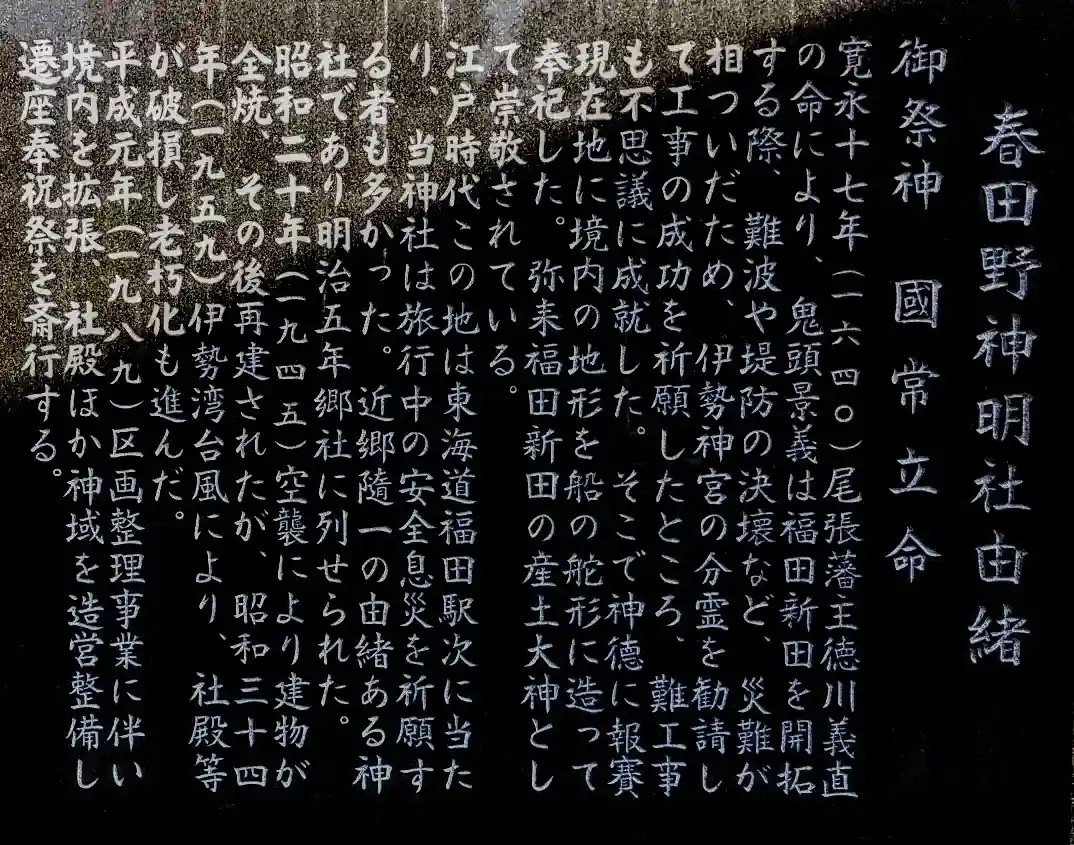 春田野神明社由緒
御祭神　國常立命
寛永十七年（一六四〇）尾張藩主徳川義直
の命により、鬼頭景義は福田新田を開拓
する際、難波や堤防の決壊など、災難が
相ついだため、伊勢神宮の分霊を勧請し
て工事の成功を祈願したところ、難工事
も不思議に成就した。そこで神徳に報賽
現在地に境内の地形を船の舵形に造って
奉祀した。弥来福田新田の産土大神とし
て崇敬されている。
江戸時代この地は東海道福田駅次に当た
り、当神社は旅行中の安全息災を祈願す
る者も多かった。近郷随一の由緒ある神
社であり明治五年郷社に列せられた。
昭和二十年（一九四五）空襲により建物が
全焼、その後再建されたが、昭和三十四
年（一九五九）伊勢湾台風により、社殿等
が破損し老朽化も進んだ。
平成元年（一九八九）区画整理事業に伴い
境内を拡張、社殿ほか神域を造営整備し
遷座奉祝祭を斎行する。